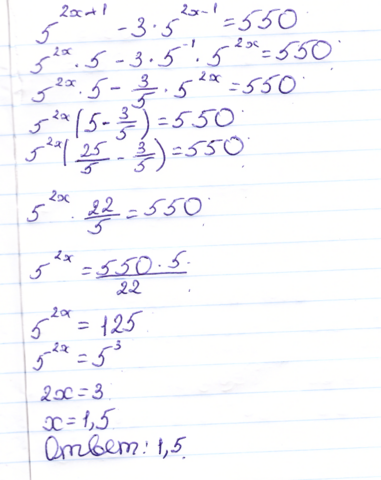 5^{2x+1} - 3 · 5^{2x-1} = 550
5^{2x} · 5 - 3 · 5^{-1} · 5^{2x} = 550
5^{2x} · 5 - 3/5 · 5^{2x} = 550
5^{2x} (5 - 3/5) = 550
5^{2x} (25/5 - 3/5) = 550
5^{2x} · 22/5 = 550
5^{2x} = 550 · 5 / 22
5^{2x} = 125
5^{2x} = 5^3
2x = 3
x = 1,5
Ответ: 1,5.